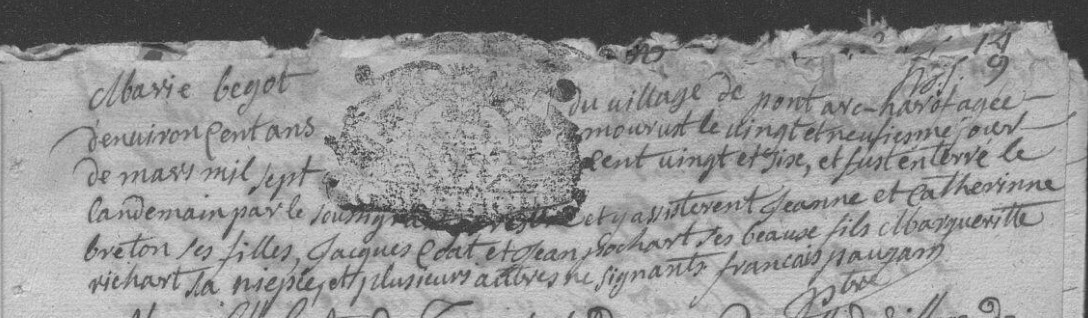 14
fol. 9
Marie begot du village de pont ar-harot agée
d'environ Cent ans mourust le vingt et neufiesme jour
de mars mil sept Cent vingt et sise, et fust enterré le
landemain par le soussigné et y assisterent Jeanne et Catherinne
breton ses filles, Jacques Coat et Jean ses beause fils Margueritte
richart sa niepce, et plusieurs autres ne signants francois paugam
ptre